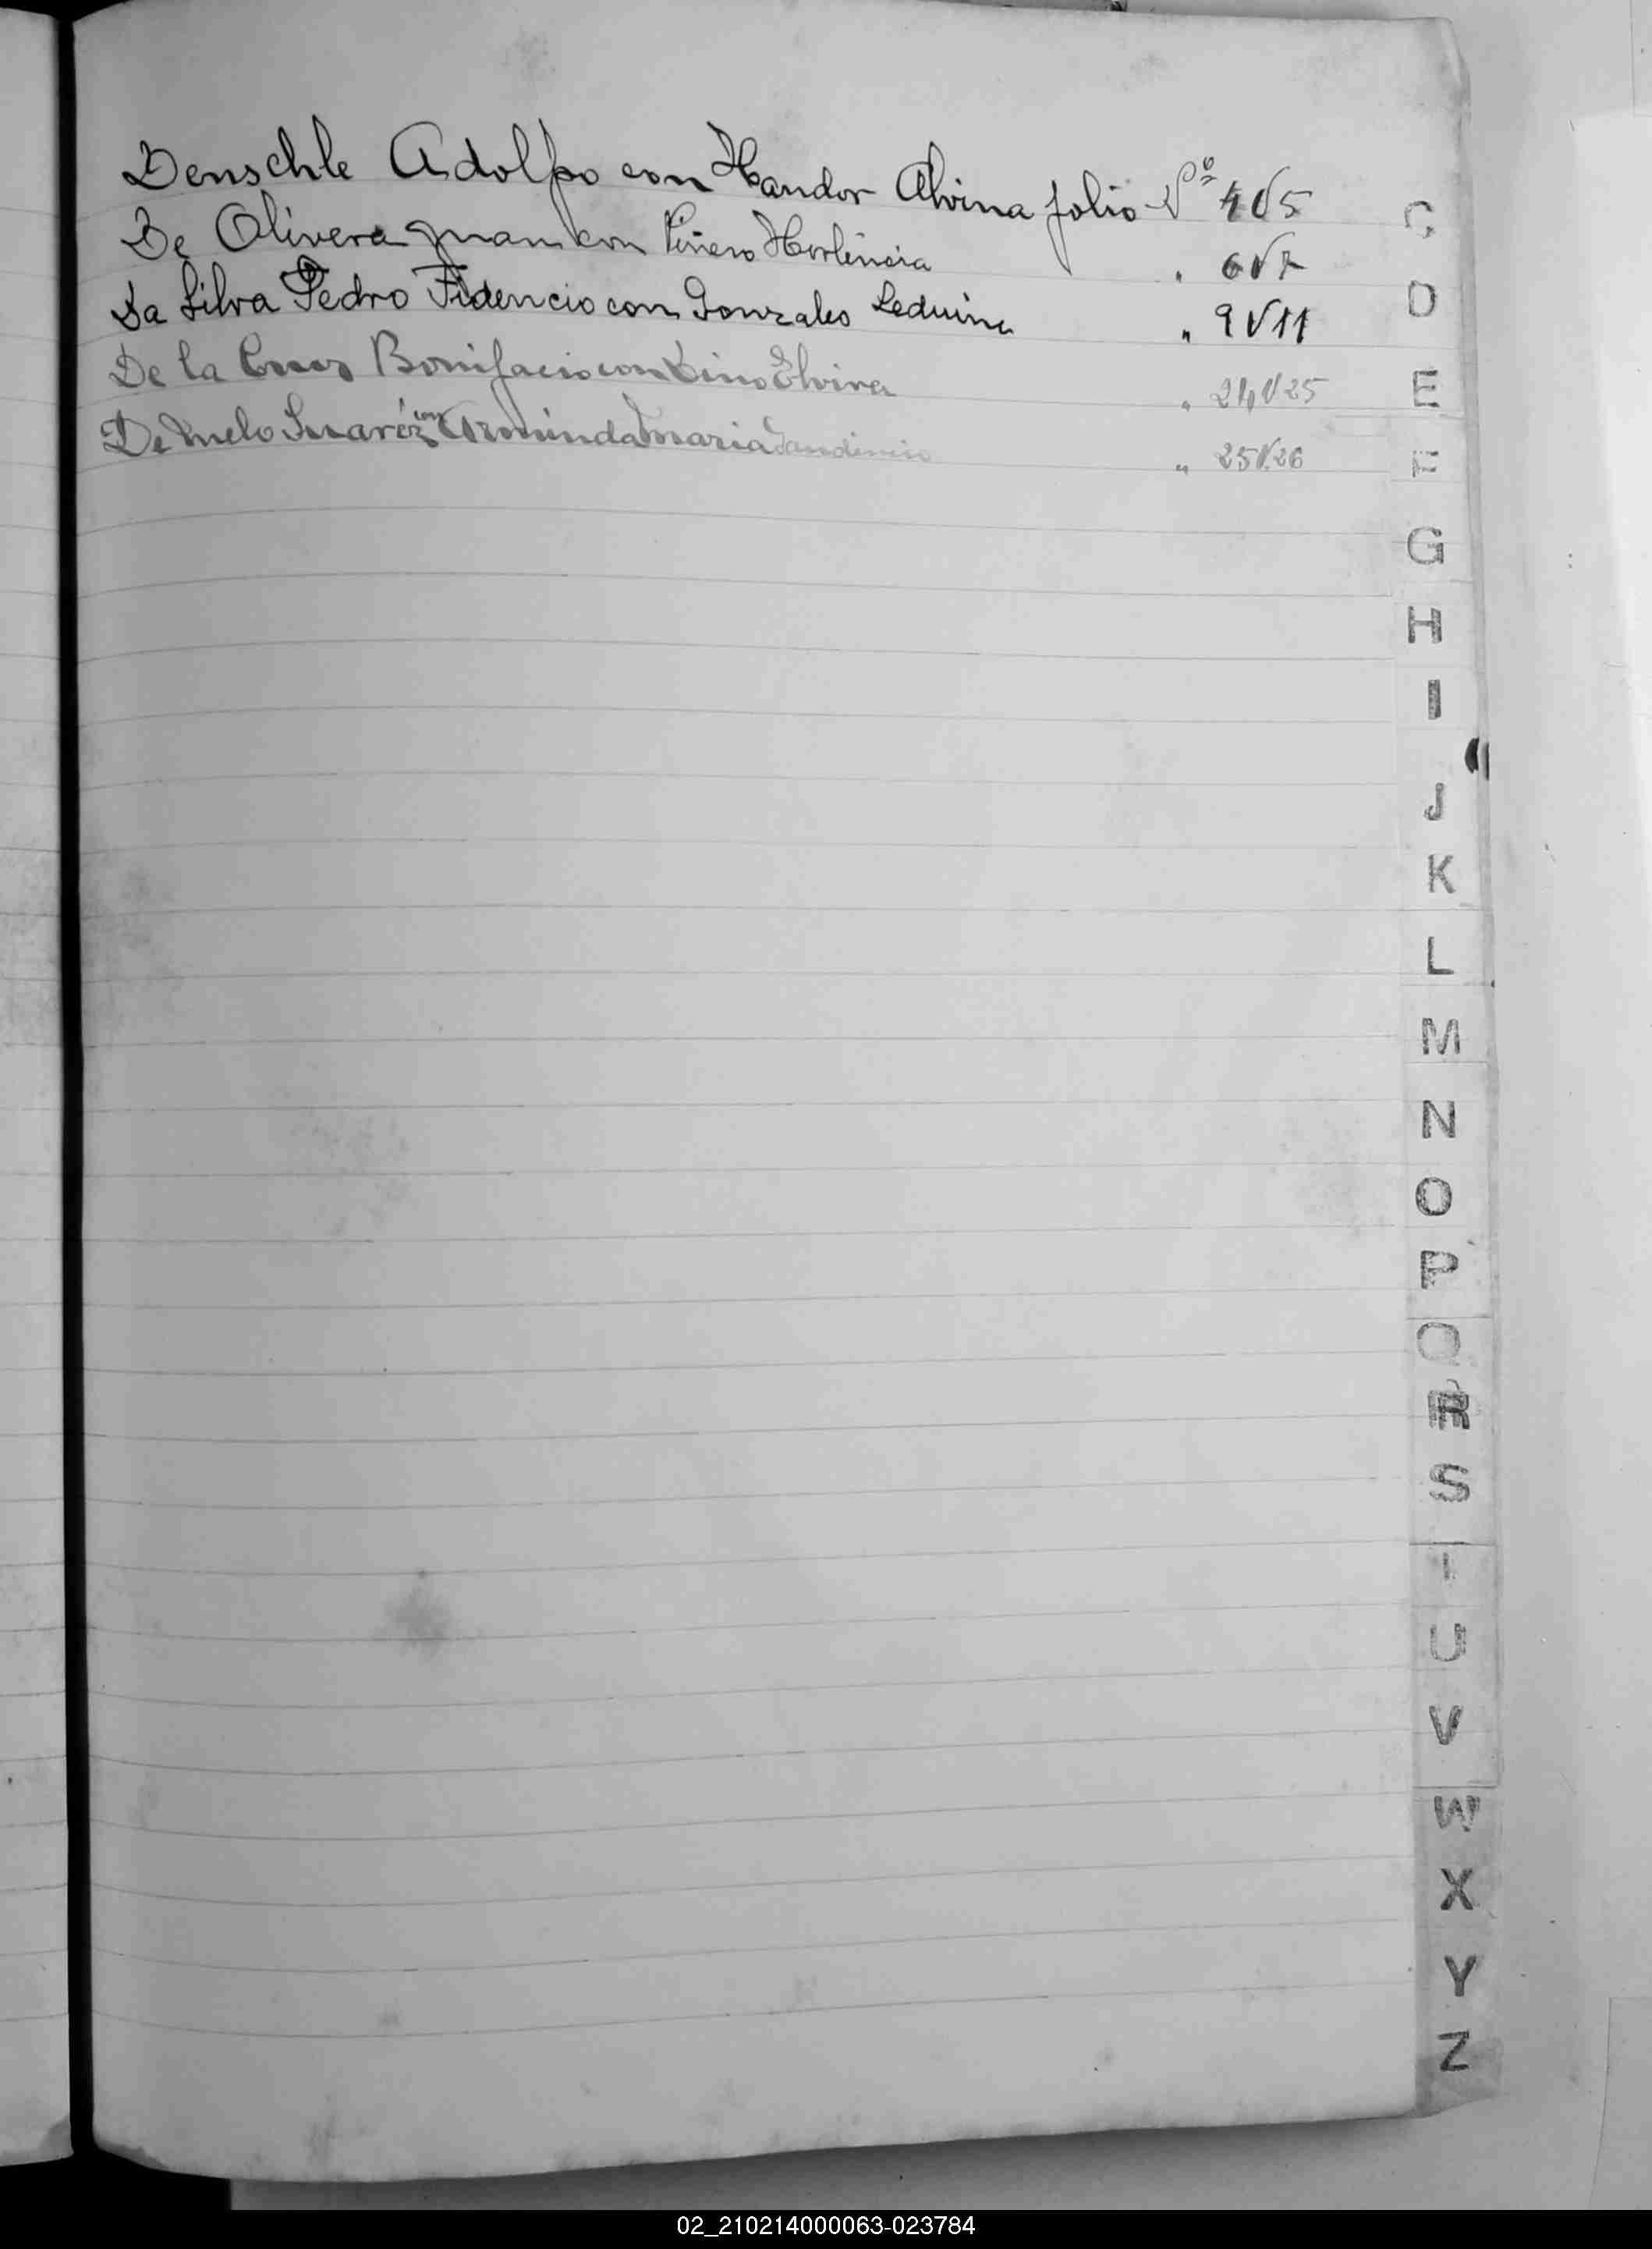 Denschle Adolfo con Handor Alvina folio Nº 4V5
De Olivera Juan con Piñero Hortencia " 6V7
Da Silva Pedro Fidencio con Gonzales Leduina " 9V11
De la Cruz Bonifacio con Lino Elvira " 24V25
De Melo Suarez con María " 25V26
C
D
E
F
G
H
I
J
K
L
M
N
O
P
Q
R
S
T
U
V
W
X
Y
Z
02_210214000063-023784